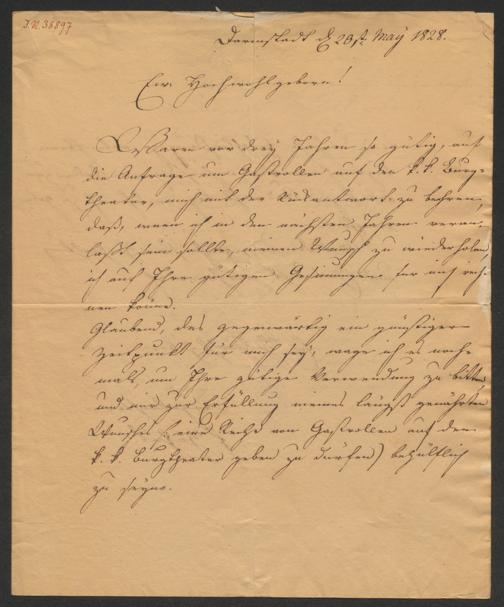 J.N. 36897
Darmstadt d 20st. May 1828.
Euer Hochwohlgeborn!
Es waren vor drey Jahren so gütig, auf
die Anfrage um Gastrollen auf den k. k. Burg-
theater, mich mit der Rückantwort zu beehren,
daß, wenn ich in den nächsten Jahren veran-
laßt sein sollte, meinen Wunsch zu wiederholen,
ich auf Ihre gütigen Gesinnungen für mich rech-
nen könne.
Glaubend, das gegenwärtig ein günstiger
Zeitpunkt für mich sey, wage ich es noch-
mals, um Ihre gütige Verwendung zu bitten,
und mir zur Erfüllung meines längst genährten
Wunsches (eine Reihe von Gastrollen auf dem
k. k. Burgtheater geben zu dürfen) behülflich
zu seyn.